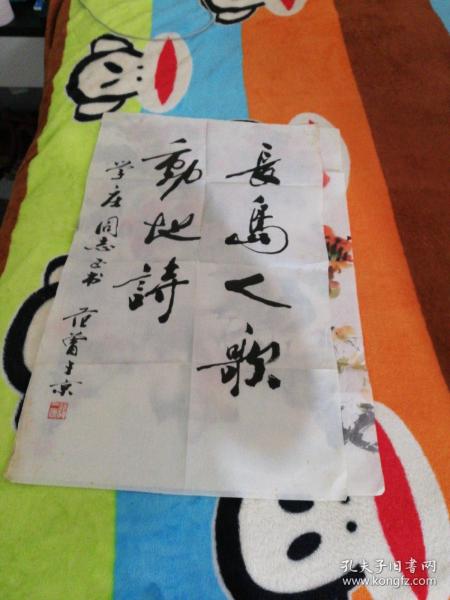 長島人歌
動地詩
学庄同志正书
范曾于京
孔夫子旧书网
www.kongfz.com